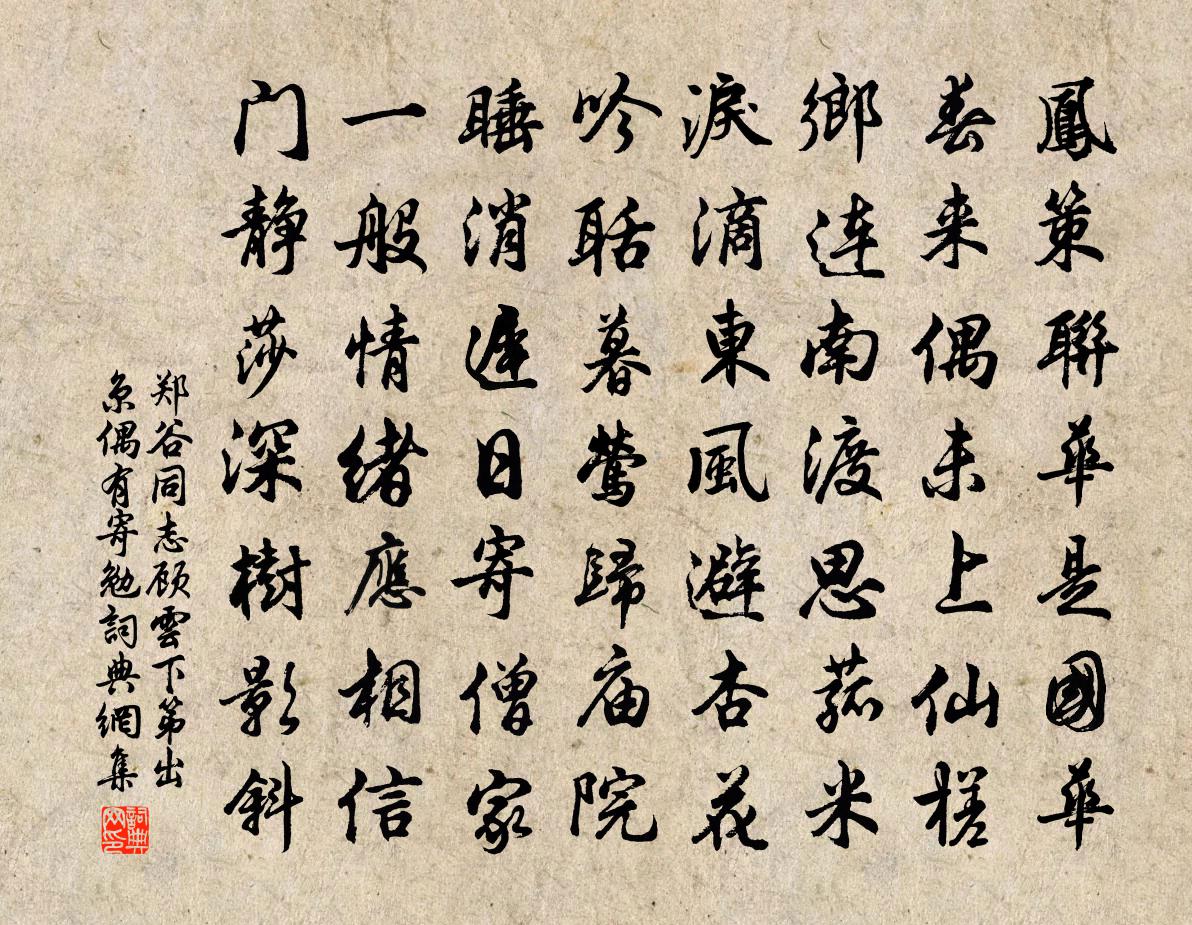 鳳策聯華是國華
春来偶未上仙槎
鄉连南渡思菰米
淚滴東風避杏花
吟聒暮莺歸庙院
睡消遲日寄僧家
一般情緒應相信
门静莎深樹影斜
郑谷同志顾雲下第出
京偶有寄勉詞典網集
詞典
网印